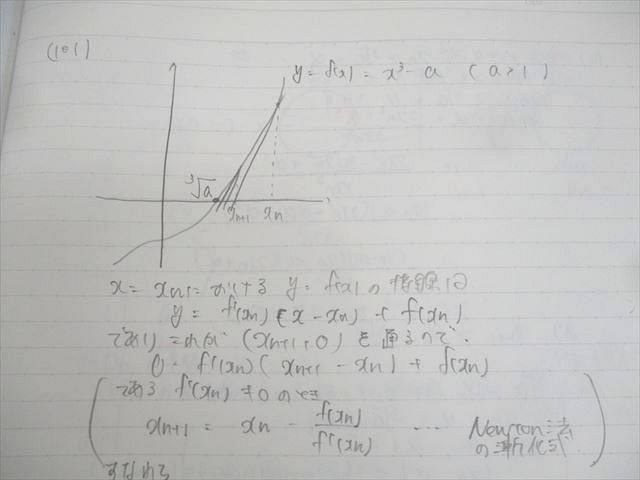 (101)
y = f(x) = x³ - a (a > 1)
³√a
xn+1 xn
x = xnにおける y = f(x) の接線は
y = f'(xn) (x - xn) + f(xn)
であり これが (xn+1, 0) を通るので、
0 = f'(xn) ( xn+1 - xn) + f(xn)
である f'(xn) ≠ 0 のとき
xn+1 = xn - f(xn)/f'(xn) ... Newton法
の漸化式
すなわち